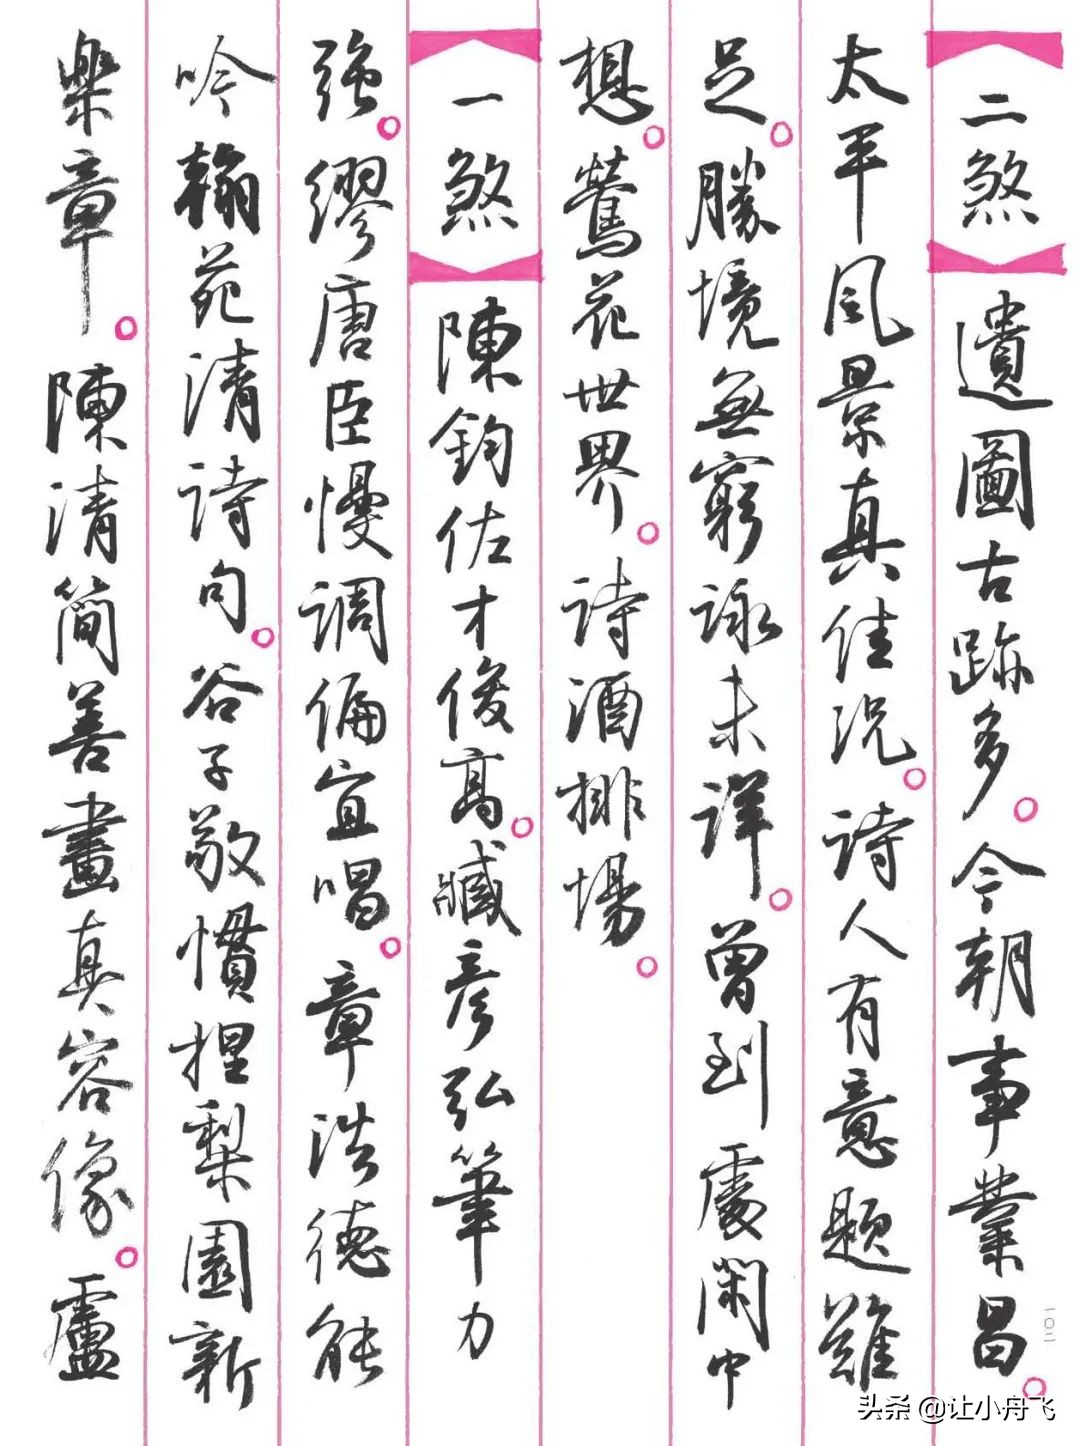 【二煞】遺圖古跡多。今朝事業昌。
太平風景真佳況。詩人有意題難
足。勝境無窮詠未詳。曾到處閑中
想。鶯花世界。詩酒排場。
【一煞】陳鈞佐才俊高。臧彥弘筆力
強。繆唐臣慢調偏宜唱。章浩德能
吟翰苑清詩句。谷子敬慣捏梨園新
樂章。陳清簡善畫真容像。盧
一〇二
头条 @让小舟飞